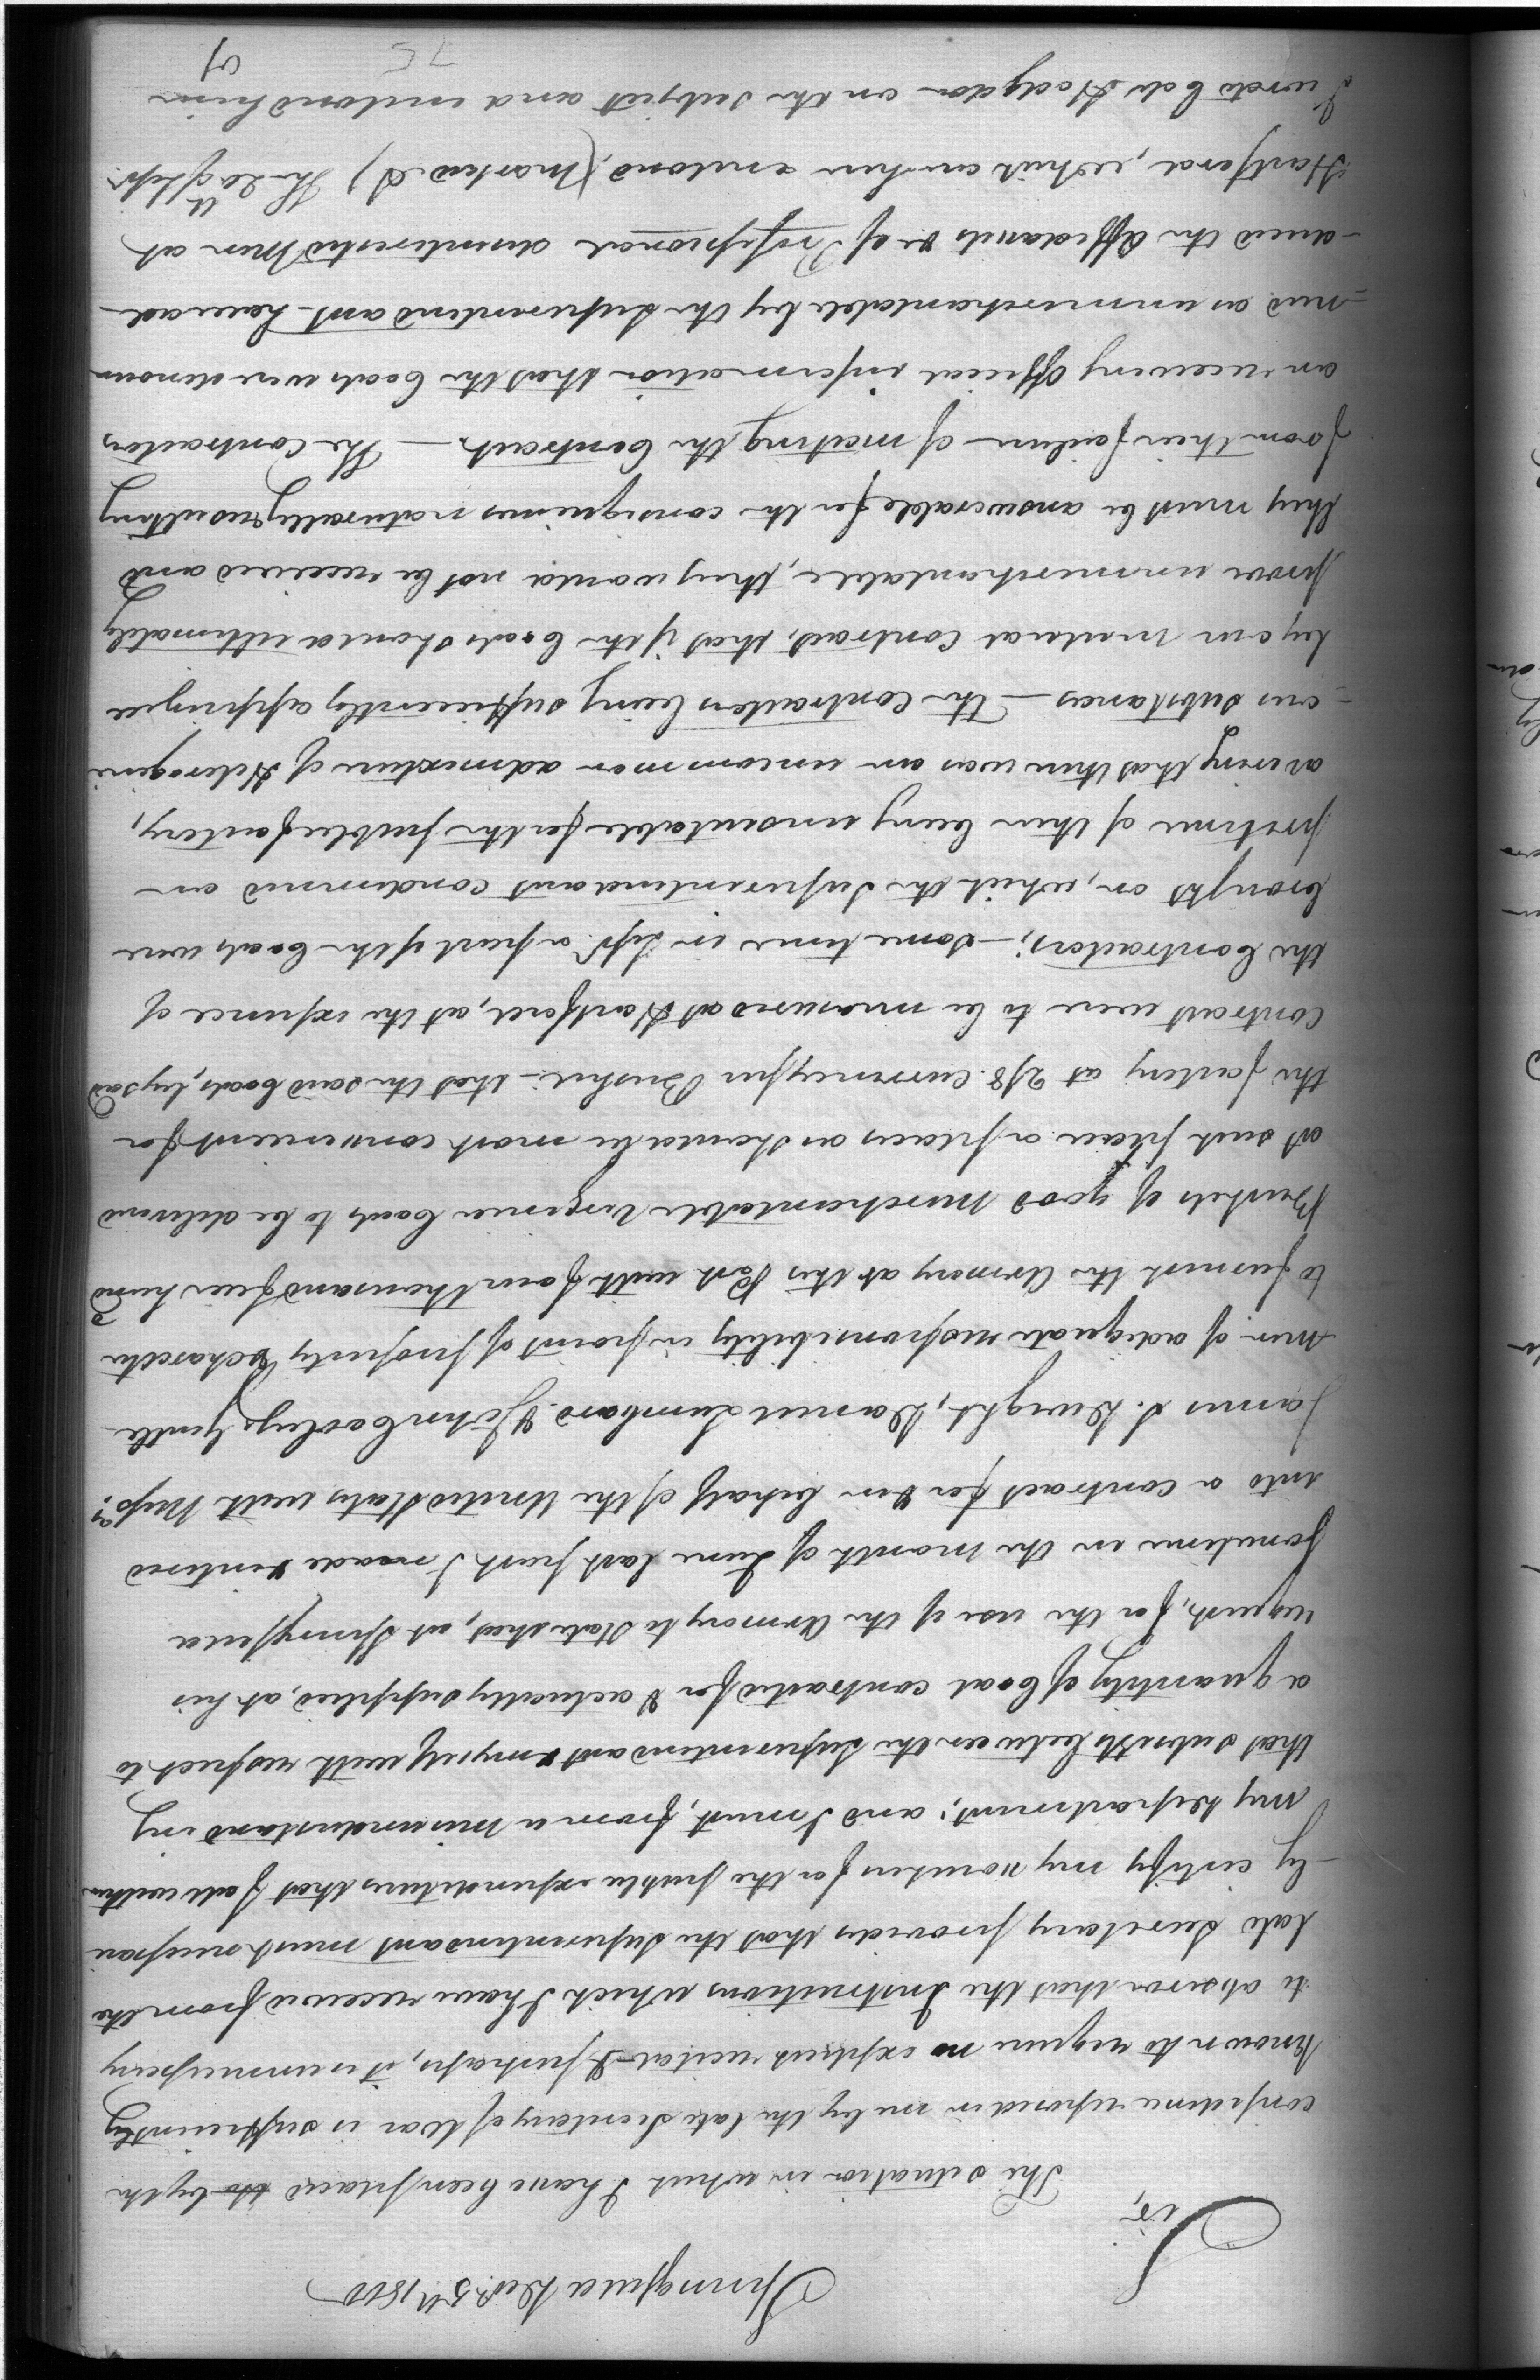 Springfield Decr. 5th 1800
Sir,
The situation in which I have been placed by the
confidence reposed in me by the late Secretary of War is sufficiently
known to require no explicit recital & perhaps, it is unnecessary
to observe that the Instructions which I have received from the
late Secretary provides that the Superintendant must necessari
-ly certify my vouchers for the public expenditures that fall within
my Department; and I must, from a misunderstanding
that subsists between the Superintendant & myself with respect to
a quantity of Coal contracted for & actually supplied, at his
request, for the use of the Armory to State that, at Springfield
sometime in the month of June last past I made & entered
into a contract for & in behalf of the United States with Messrs.
James S. Dwight, Daniel Lumbard & John Cooley, Gentle
men of adequate responsibility in point of property & character
to furnish the Armory at this Post with four thousand five hund
Bushels of good merchantable Virginia Coals to be delivered
at such place or places as should be most convenient for
the factory at 2/8 currency per Bushel - that the said Coals, by said
Contract were to be measured at Hartford, at the expence of
the Contractors; - some time in Sepr. a part of the Coals were
brought on, which the Superintendant condemned on
pretence of their being unsuitable for the public factory,
averring that there was an uncommon admixture of Heterogene
-ous substances - The Contractors being sufficiently apprized
by our material Contract, that if the Coals should ultimately
prove unmerchantable, they would not be received and
they must be answerable for the consequences naturally resulting
from their failure of meeting the Contract. - The Contractors
on receiving official information that the Coals were denoun
-ced as unmerchantable by the Superintendant have ad
-duced the Affidavits &c of Professional disinterested Men at
Hartford, which are here enclosed, (marked A) The 20th Sepr.
I wrote Col. Hodgdon on the subject and enclosed him
75